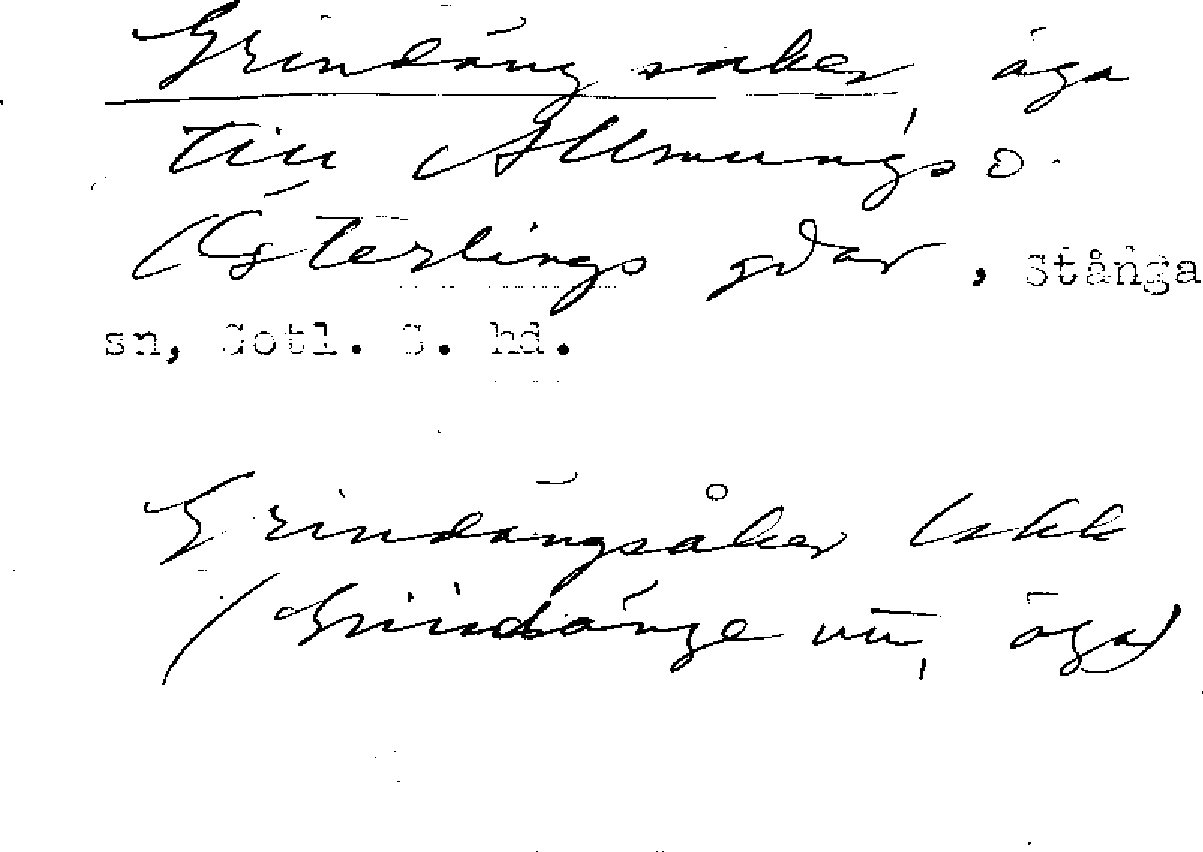 Grindängsåker, äga
till Allmungs o.
(Österlings gdar, Stånga
sn, Gotl. S. hd.
Grindängsåker Lskk
(Grindänge utm, äga)